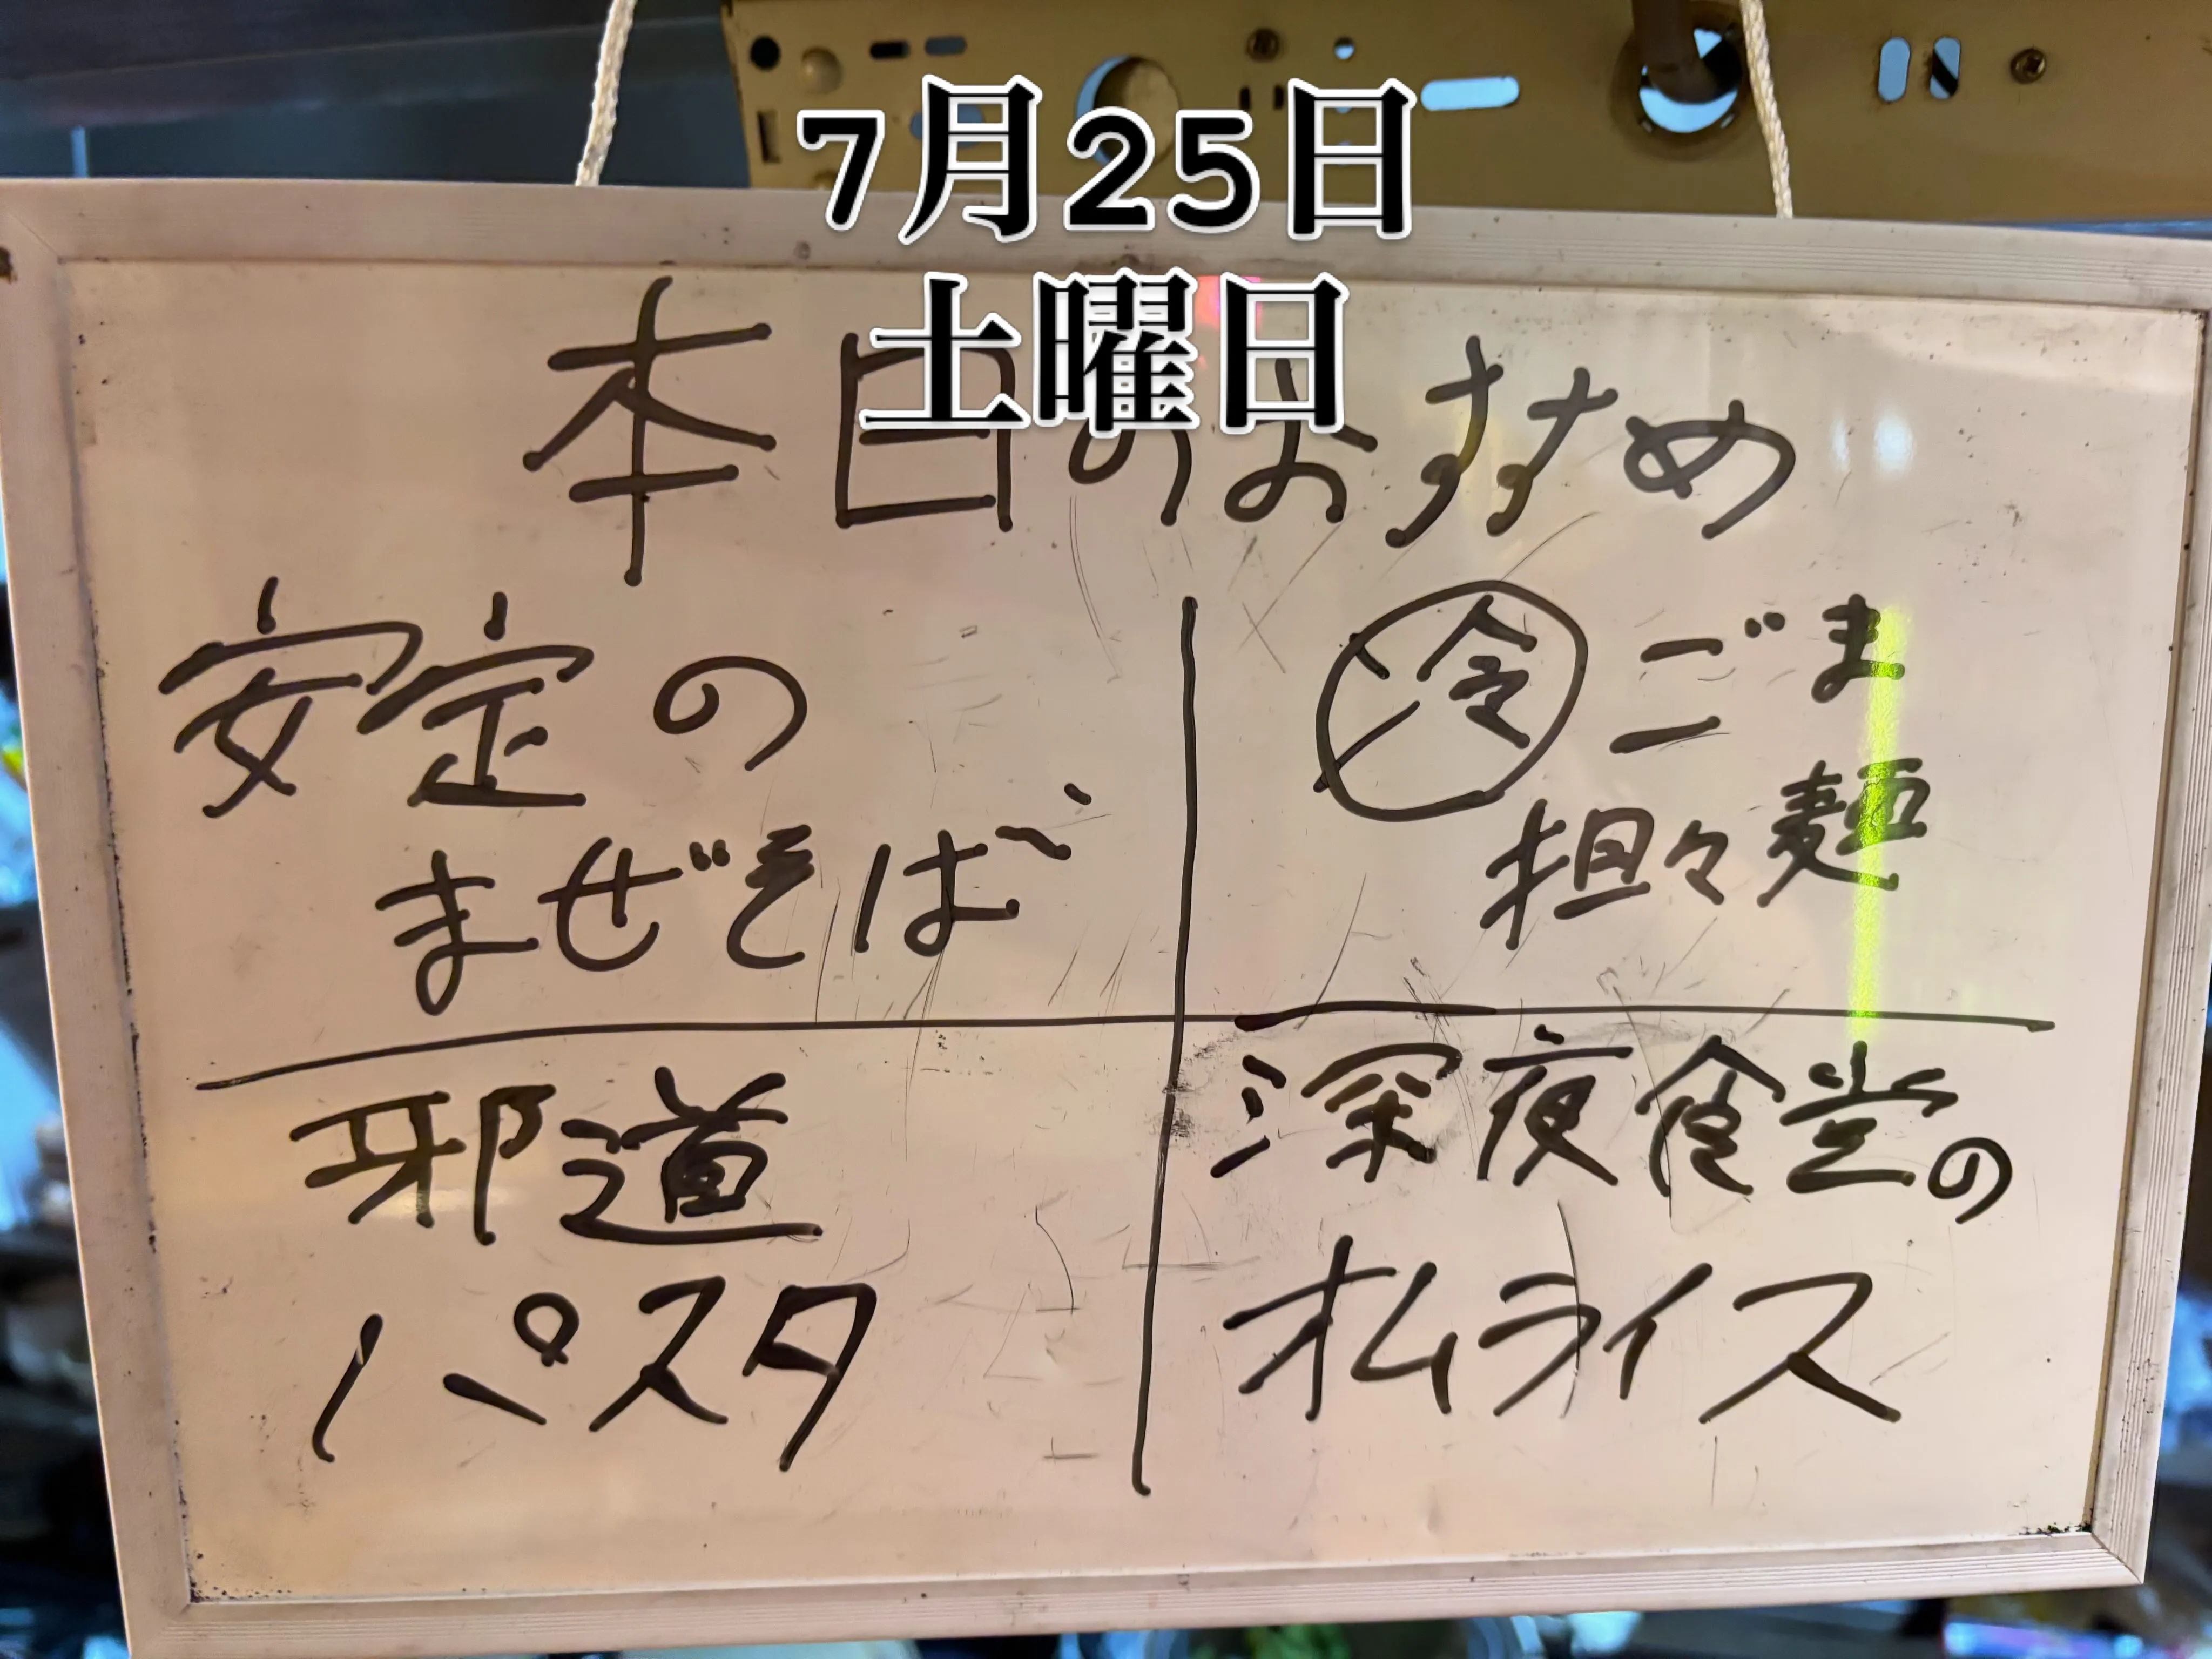 7月25日
土曜日
本日のおすすめ
安定の
まぜそば
冷 ごま
担々麺
邪道
パスタ
深夜食堂の
オムライス